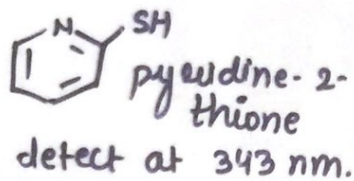 N
SH
pyridine-2-
thione
detect at 343 nm.